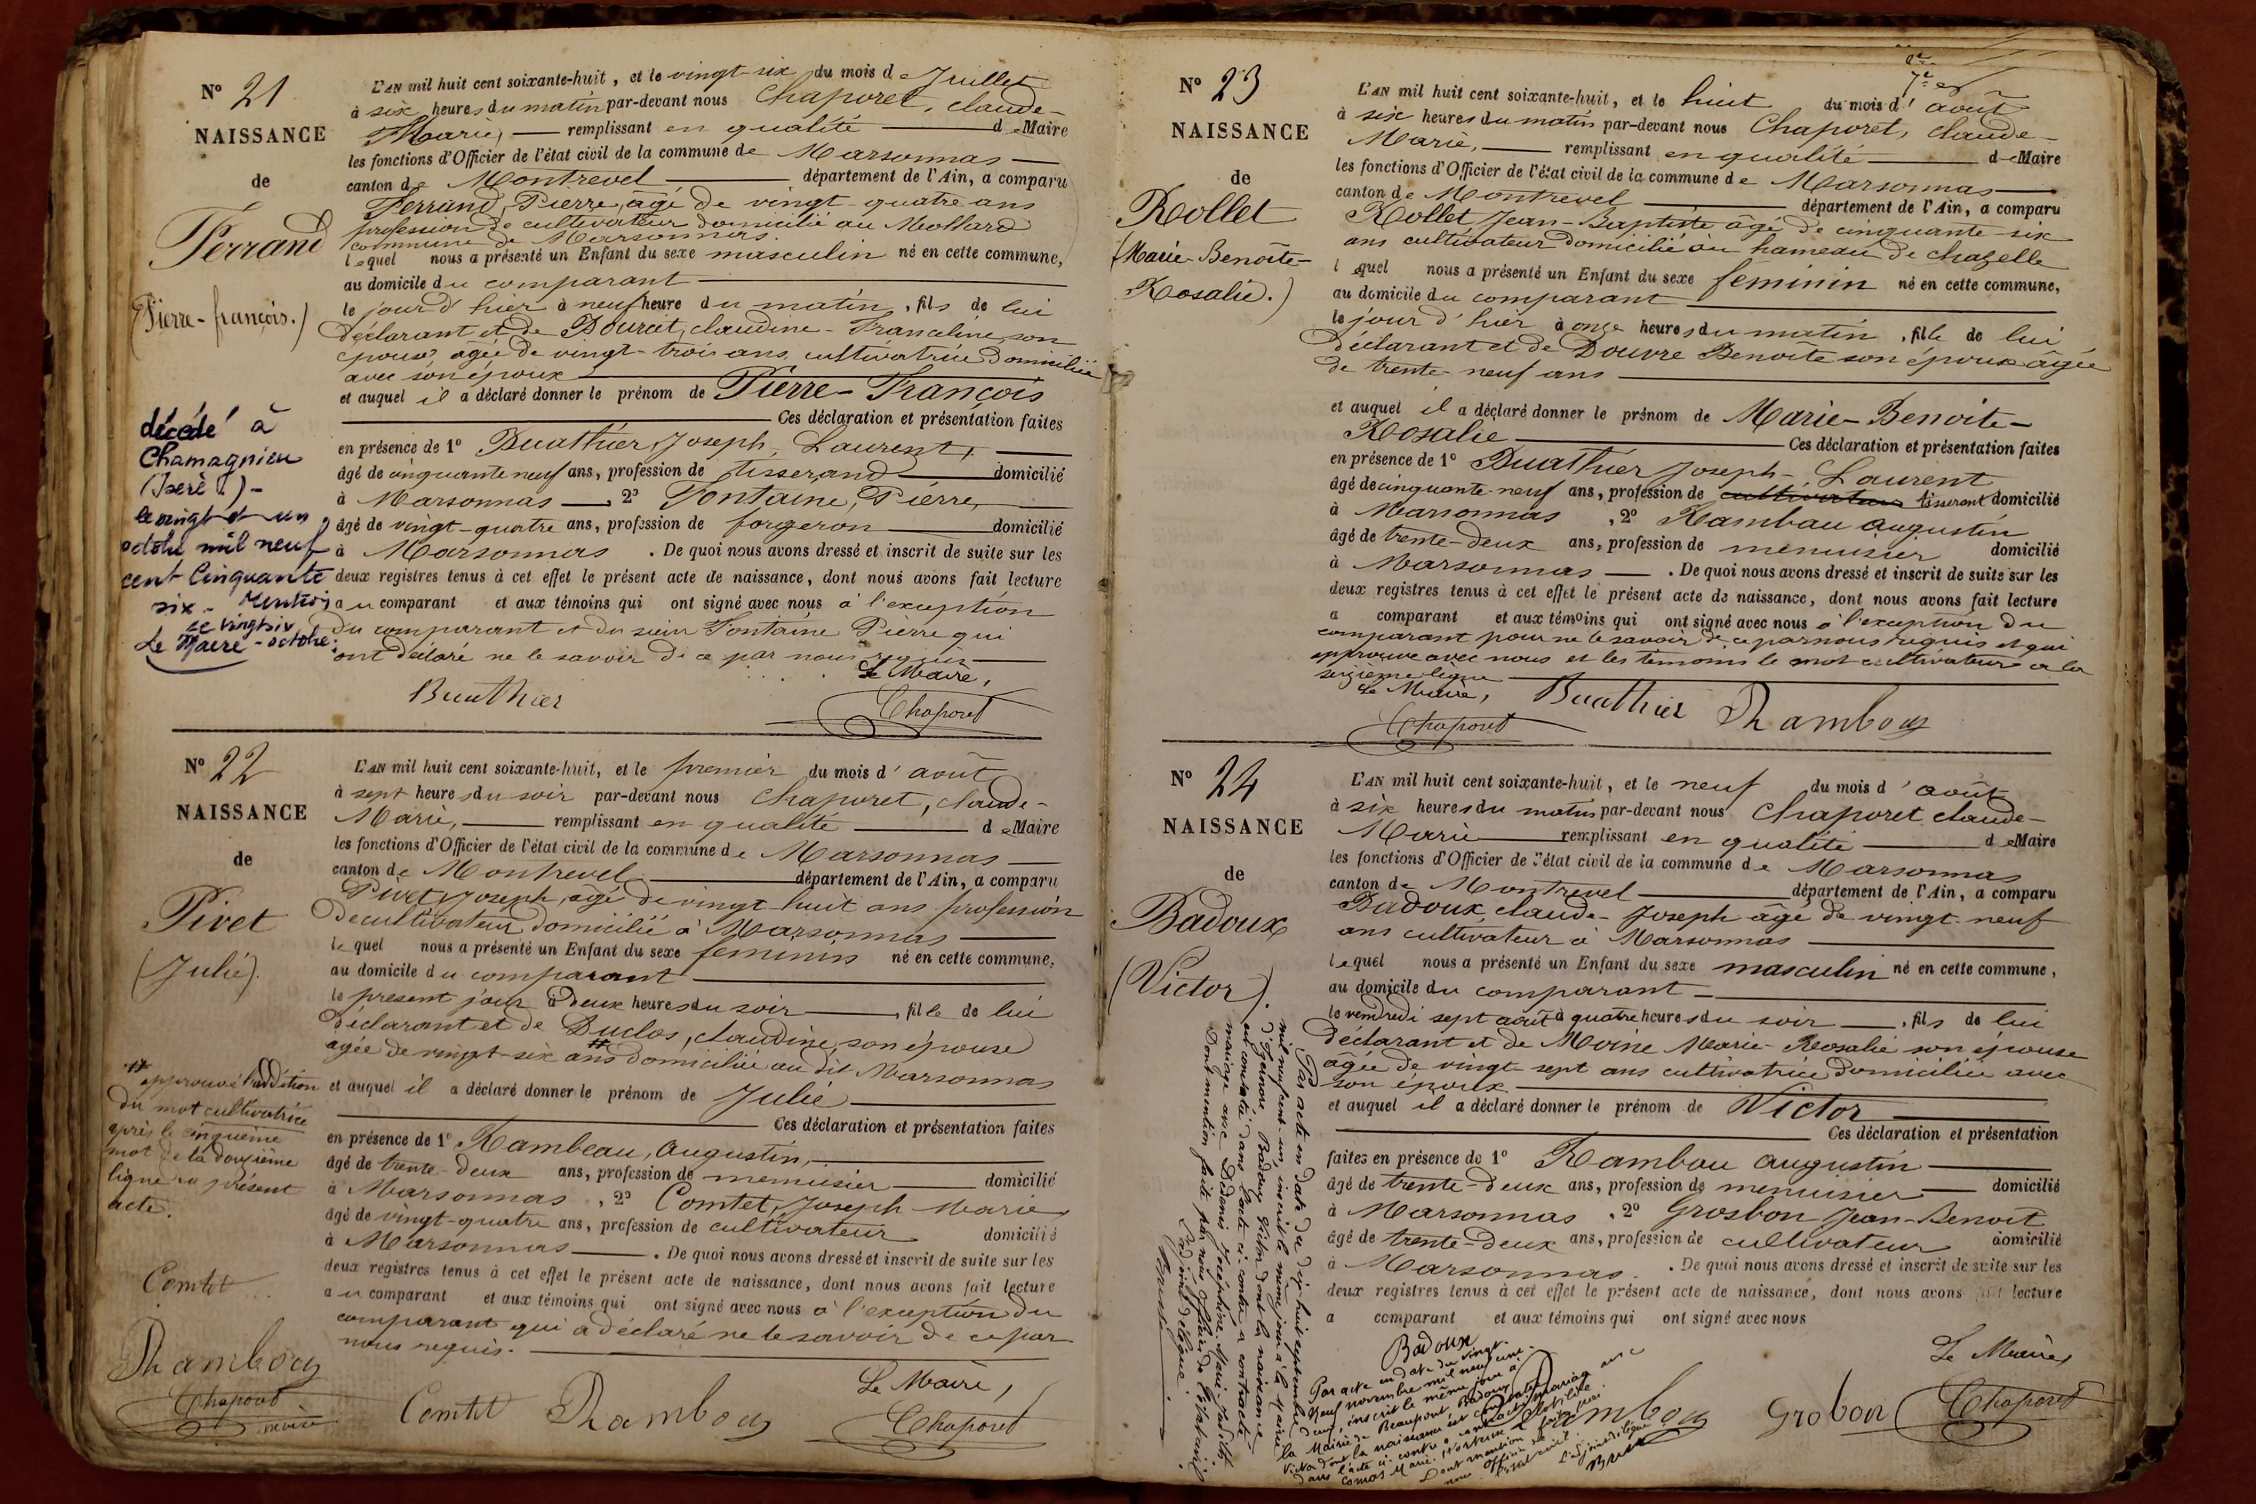 N° 21
NAISSANCE
de
Ferrand
(Pierre-françois.)
L'AN mil huit cent soixante-huit, et le vingt-six du mois de Juillet
à six heures du matin par-devant nous Chaporet, claude-
Marie, remplissant en qualité de Maire
les fonctions d'Officier de l'état civil de la commune de Marsonnas
canton de Montrevel département de l'Ain, a comparu
Ferrand, Pierre, âgé de vingt-quatre ans
profession de cultivateur domicilié au Mollard
commune de Marsonnas.
lequel nous a présenté un Enfant du sexe masculin né en cette commune,
au domicile du comparant
le jour d'hier à neuf heure du matin, fils de lui
déclarant et de Bourcet, claudine-Franceline, son
épouse, âgée de vingt-trois ans, cultivatrice domiciliée
avec son époux
et auquel il a déclaré donner le prénom de Pierre-François
Ces déclaration et présentation faites
en présence de 1° Buathier Joseph, Laurent,
âgé de cinquante neuf ans, profession de tisserand domicilié
à Marsonnas, 2° Fontaine, Pierre,
âgé de vingt-quatre ans, profession de forgeron domicilié
à Marsonnas. De quoi nous avons dressé et inscrit de suite sur les
deux registres tenus à cet effet le présent acte de naissance, dont nous avons fait lecture
au comparant et aux témoins qui ont signé avec nous à l'exception
du comparant et du sieur Fontaine Pierre qui
ont déclaré ne le savoir de ce par nous requis
Le Maire,
Buathier
Chaporet
décédé à
Chamagnieu
(Isère.)-
le vingt et un
octobre mil neuf
cent cinquante
six - Mention
le vingt six
Le Maire - octobre.
N° 22
NAISSANCE
de
Pivet
(Julie).
L'AN mil huit cent soixante-huit, et le premier du mois d'août
à sept heures du soir par-devant nous Chaporet, claude-
Marie, remplissant en qualité de Maire
les fonctions d'Officier de l'état civil de la commune de Marsonnas
canton de Montrevel département de l'Ain, a comparu
Pivet, Joseph, âgé de vingt-huit ans profession
de cultivateur domicilié à Marsonnas
lequel nous a présenté un Enfant du sexe feminin né en cette commune,
au domicile du comparant
le présent jour à deux heures du soir, fille de lui
déclarant et de Duclos, claudine, son épouse
agée de vingt-six ans # domiciliée au dit Marsonnas
et auquel il a déclaré donner le prénom de Julie
Ces déclaration et présentation faites
en présence de 1° Rambeau, augustin,
âgé de trente-deux ans, profession de menuisier domicilié
à Marsonnas, 2° Comtet, Joseph Marie
âgé de vingt-quatre ans, profession de cultivateur domicilié
à Marsonnas. De quoi nous avons dressé et inscrit de suite sur les
deux registres tenus à cet effet le présent acte de naissance, dont nous avons fait lecture
au comparant et aux témoins qui ont signé avec nous à l'exception du
comparant qui a déclaré ne le savoir de ce par
nous requis.
Le Maire,
Comtet Rambour Chaporet
# approuvé l'addition
du mot cultivatrice
après le cinquième
mot de la douzième
ligne du présent
acte.
Comtet
Rambour
Chaporet
maire
N° 23
NAISSANCE
de
Rollet
(Marie-Benoîte-
Rosalie.)
L'AN mil huit cent soixante-huit, et le huit du mois d'août
à six heures du matin par-devant nous Chaporet, claude-
Marie, remplissant en qualité de Maire
les fonctions d'Officier de l'état civil de la commune de Marsonnas
canton de Montrevel département de l'Ain, a comparu
Rollet Jean-Baptiste âgé de cinquante-six
ans cultivateur domicilié au hameau de chazelle
lequel nous a présenté un Enfant du sexe feminin né en cette commune,
au domicile du comparant
le jour d'hier à onze heures du matin, fille de lui
déclarant et de Douvre Benoîte son épouse âgée
de trente-neuf ans
et auquel il a déclaré donner le prénom de Marie-Benoite-
Rosalie Ces déclaration et présentation faites
en présence de 1° Buathier Joseph-Laurent
âgé de cinquante-neuf ans, profession de cultivateur tisserant domicilié
à Marsonnas, 2° Rambau augustin
âgé de trente-deux ans, profession de menuisier domicilié
à Marsonnas. De quoi nous avons dressé et inscrit de suite sur les
deux registres tenus à cet effet le présent acte de naissance, dont nous avons fait lecture
a comparant et aux témoins qui ont signé avec nous à l'exception du
comparant pour ne le savoir de ce par nous requis et qui
approuve avec nous et les témoins le mot cultivateur à la
seizième ligne
Le Maire, Buathier Rambour
Chaporet
N° 24
NAISSANCE
de
Badoux
(Victor).
L'AN mil huit cent soixante-huit, et le neuf du mois d'août
à six heures du matin par-devant nous Chaporet claude-
Marie remplissant en qualité de Maire
les fonctions d'Officier de l'état civil de la commune de Marsonnas
canton de Montrevel département de l'Ain, a comparu
Badoux, claude-Joseph âgé de vingt-neuf
ans cultivateur à Marsonnas
lequel nous a présenté un Enfant du sexe masculin né en cette commune,
au domicile du comparant
le vendredi sept août à quatre heures du soir, fils de lui
déclarant et de Moine Marie-Rosalie son épouse
âgée de vingt-sept ans cultivatrice domiciliée avec
son époux
et auquel il a déclaré donner le prénom de Victor
Ces déclaration et présentation
faites en présence de 1° Rambau augustin
âgé de trente-deux ans, profession de menuisier domicilié
à Marsonnas, 2° Grosbon Jean-Benoit
âgé de trente-deux ans, profession de cultivateur domicilié
à Marsonnas. De quoi nous avons dressé et inscrit de suite sur les
deux registres tenus à cet effet le présent acte de naissance, dont nous avons fait lecture
a comparant et aux témoins qui ont signé avec nous
Le Maire,
Badoux
Rambour Grobon Chaporet
Par acte en date du dix huit septembre
mil neuf cent un, inscrit le même jour à la Mairie
Badoux Victor dont la naissance
est constatée dans l'acte ci-contre a contracté
mariage avec Joséphine Marie
Dont mention faite par nous officier de l'état civil
Par acte en date du vingt-
neuf novembre mil neuf cent
inscrit le même jour à
la Mairie de Beaupont, Badoux
Victor dont la naissance est constatée
dans l'acte ci-contre a contracté mariage avec
Dont mention faite par
nous officier de l'état civil.